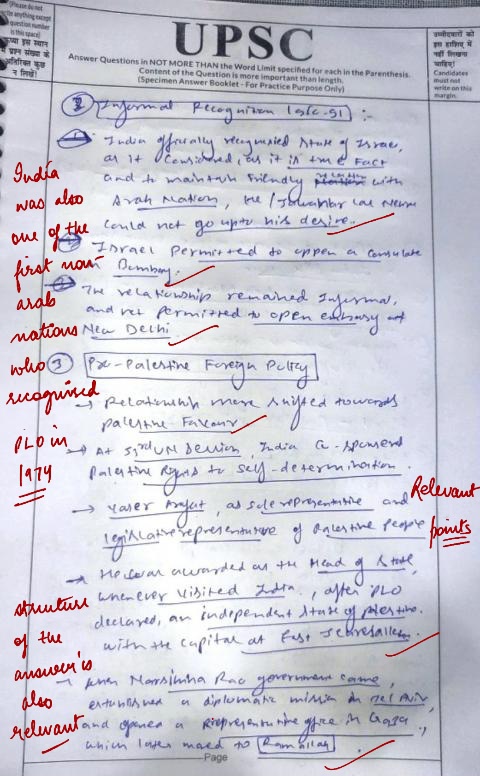 (Please do not
write anything except
question number
in this space)
UPSC
Answer Questions in NOT MORE THAN the Word Limit specified for each in the Parenthesis.
Content of the Question is more important than length.
(Specimen Answer Booklet - For Practice Purpose Only)
उम्मीदवारों को
इस हाशिए में
नहीं लिखना
चाहिए।
Candidates
must not
write on this
margin.
② Informal Recognition :-
India officially recognised State of Israel,
as it considered, as it is true Fact
and to maintain friendly relation with
Arab Nation, Jawahar Lal Nehru
could not go upto his desire.
Israel Permitted to oppen a consulate
in Bombay.
The relationship remained Informal,
and not permitted to open embassy at
New Delhi
③ Pro-Palestine Foreign Policy
→ Relationship more shifted towards
Palestine Favour
→ At 53rd UN Session, India Co-sponsored
Palestine Rights to self-determination.
→ Yaser Arafat, as sole representative and
legislative representative of Palestine People
→ He was awarded as the Head of State,
whenever visited India, after PLO
declared, an independent State of Palestine.
with the capital at East Jerusalem
→ When Narsimha Rao government came,
established a diplomatic mission in Tel Aviv,
and opened a Representative office in Gaza,
which later moved to Ramallah
India
was also
one of the
first non
arab
nations
who
recognised
PLO in
1974
Relevant
points
structure
of the
answer is
also
relevant
Page